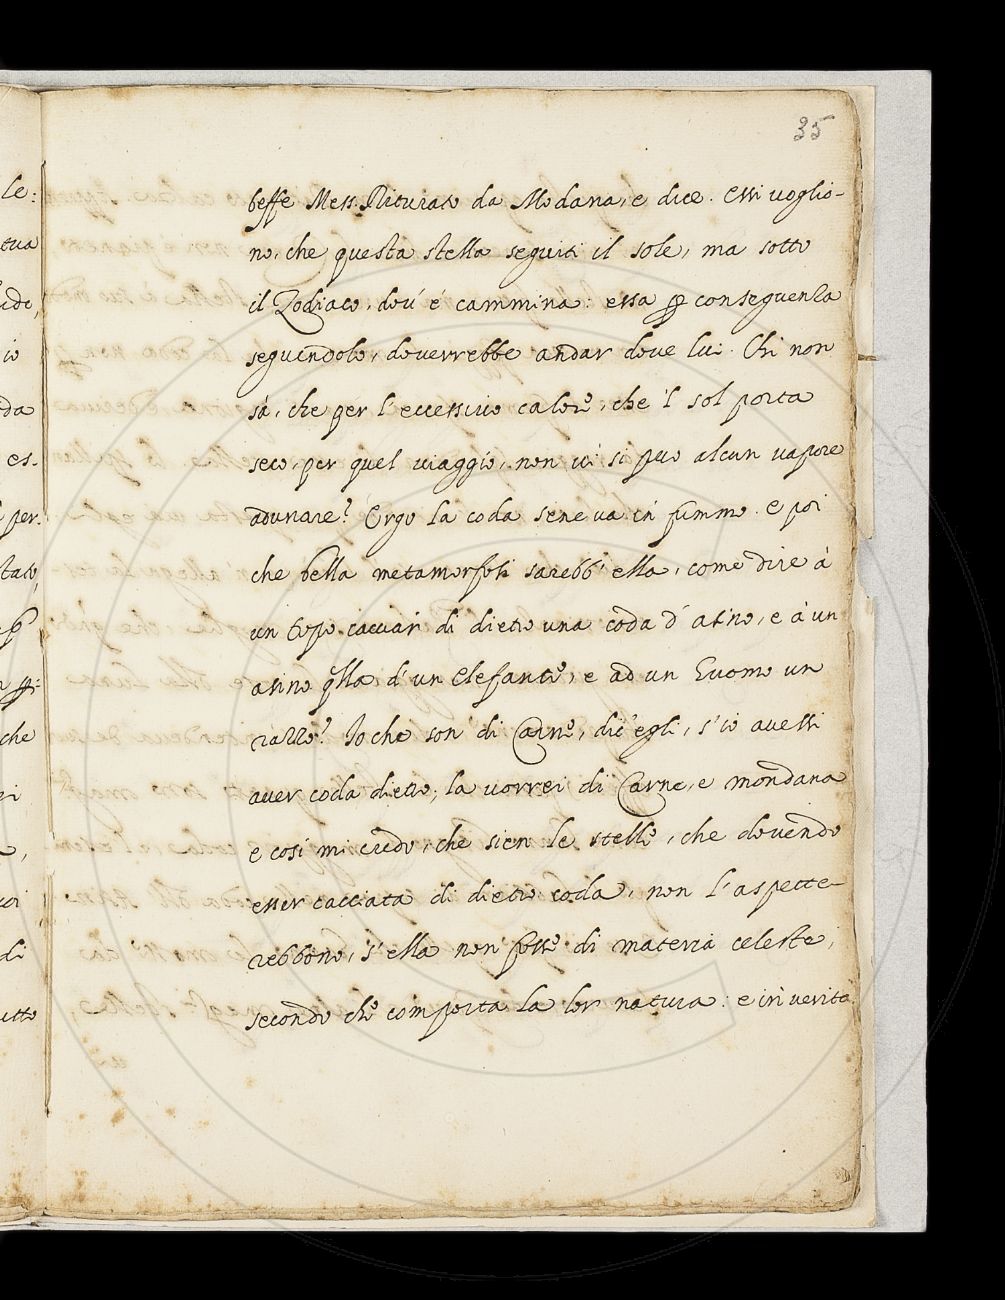 35
beffe Mess. Pitturato da Modana, e dice. Essi voglio-
no, che questa stella seguiti il sole, ma sotto
il Zodiaco, dov' é cammina: essa ꝑ conseguenza
seguendolo, doverrebbe andar dove lui. Chi non
sá, che per l'eccessivo calore, che 'l sol porta
seco, per quel viaggio, non vi si puo alcun vapore
adunare? Ergo la coda sene va in fummo. E poi
che bella metamorfosi sarebb' ella, come dire á
un topo cacciar di dietro una coda d' asino, e á un
asino q̃lla d' un Elefante, e ad un Huomo un
razzo? Io che son di Carne, dic' egli, s' io avessi
aver coda dietro, la vorrei di Carne, e mondana
e cosi mi credo, che sien le stelle, che dovendo
esser cacciata di dietro coda, non l' aspette-
rebbono, s' ella non fosse di materia celeste,
secondo che comporta la lor natura: e in veritá
le:
tua
io
da
es-
per-
che
di